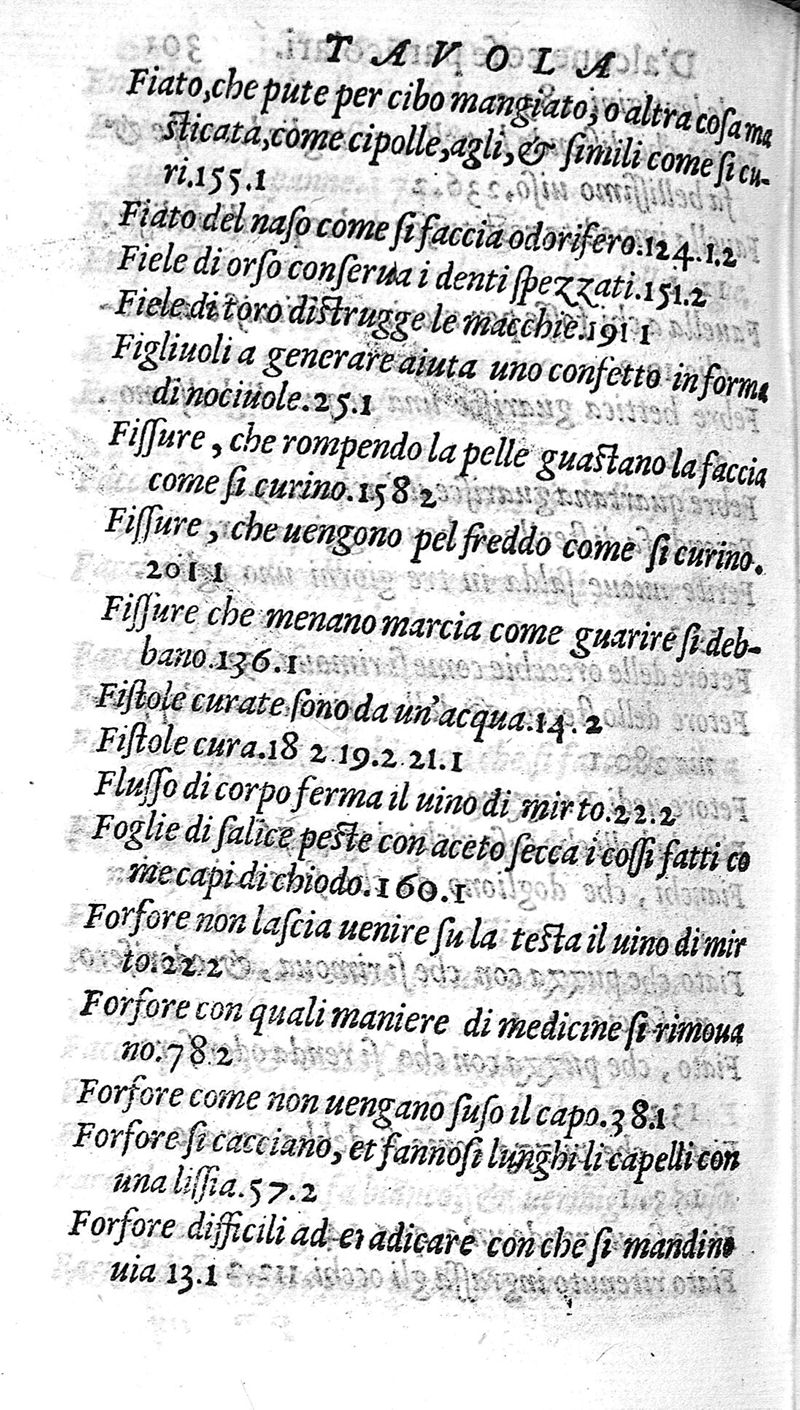 TAVOLA
Fiato,che pute per cibo mangiato, o altra coſa ma
ſticata,come cipolle,agli,& ſimili come ſi cu-
ri.155.1
Fiato del naſo come ſi faccia odorifero.124.1.2
Fiele di orſo conſerua i denti ſpezzati.151.2
Fiele di toro diſtrugge le macchie.191 1
Figliuoli a generare aiuta uno confetto in forma
di nociuole.25.1
Fiſſure, che rompendo la pelle guaſtano la faccia
come ſi curino.158 2
Fiſſure, che uengono pel freddo come ſi curino.
201 1
Fiſſure che menano marcia come guarire ſi deb-
bano.136.1
Fiſtole curate ſono da un'acqua.14.2
Fiſtole cura.18 2 19.2 21.1
Fluſſo di corpo ferma il uino di mirto.22.2
Foglie di ſalice peſte con aceto ſecca i coſſi fatti co
me capi di chiodo.160.1
Forfore non laſcia uenire ſu la teſta il uino di mir
to.22.2
Forfore con quali maniere di medicine ſi rimoua
no.78 2
Forfore come non uengano ſuſo il capo.38.1
Forfore ſi cacciano, et fannoſi lunghi li capelli con
una liſſia.57.2
Forfore difficili ad eradicare con che ſi mandino
uia 13.1